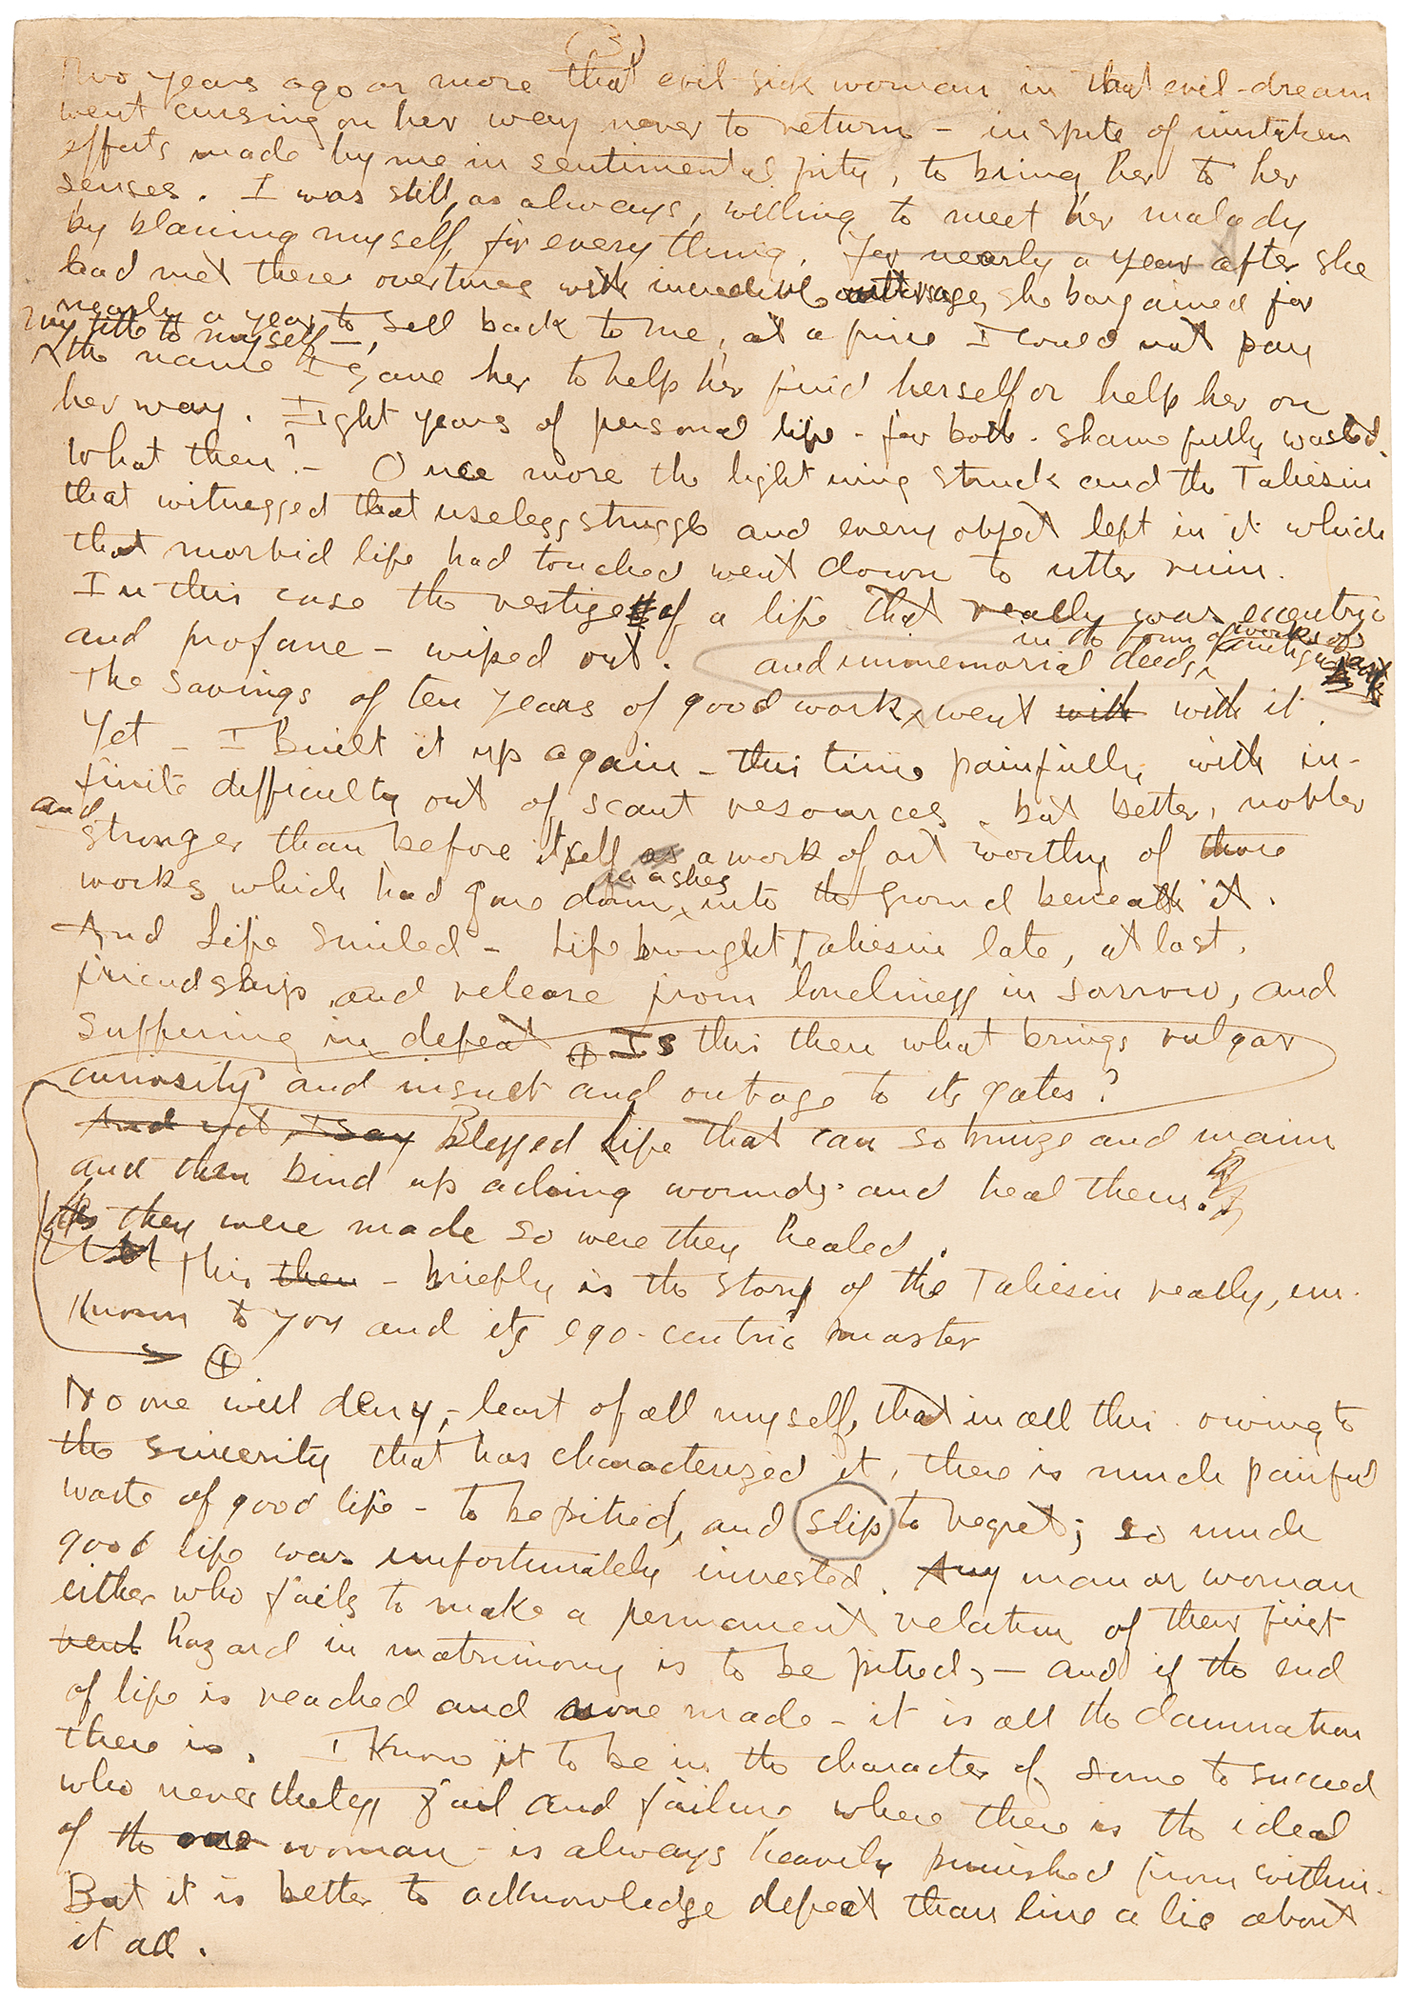 (3)
Two years ago or more that evil sick woman in that evil-dream
went cursing on her way never to return - in spite of mistaken
efforts made by me in sentimental pity, to bring her to her
senses. I was still, as always, willing to meet her malady
by blaming myself for everything. For nearly a year after she
had met these overtures with incredible outrage, she bargained for
nearly a year to sell back to me, at a price I could not pay
my title to myself -,
the name I gave her to help her find herself or help her on
her way. Eight years of personal life - for both - shamefully wasted.
What then? - Once more the lightning struck and the Taliesin
that witnessed that useless struggle and every object left in it which
that morbid life had touched went down to utter ruin.
In this case the vestige of a life that really was eccentric
and profane - wiped out. and immemorial deeds,
in the form of works of art
The savings of ten years of good work, went with with it.
Yet - I built it up again - this time painfully with in-
finite difficulty out of scant resources, but better, nobler
and
stronger than before itself as a work of art worthy of those
works which had gone down into the ground beneath it.
in ashes
And Life smiled - Life brought Taliesin late, at last,
friendship and release from loneliness in sorrow, and
suffering in defeat. Is this then what brings vulgar
curiosity and insult and outrage to its gates?
And yet, I say Blessed Life that can so bruise and maim
and then bind up aching wounds and heal them.
As they were made so were they healed.
This then - briefly is the story of the Taliesin really, un-
known to you and its ego-centric master
No one will deny, - least of all myself, that in all this owing to
the sincerity that has characterized it, there is much painful
waste of good life - to be pitied, and slip to regret; so much
good life was unfortunately invested. Any man or woman
either who fails to make a permanent relation of their first
vent hazard in matrimony is to be pitied, - and if the end
of life is reached and none made - it is all the damnation
there is. I know it to be in the character of some to succeed
who nevertheless fail and failure where there is the ideal
of the one woman - is always heavily punished from within.
But it is better to acknowledge defeat than live a lie about
it all.